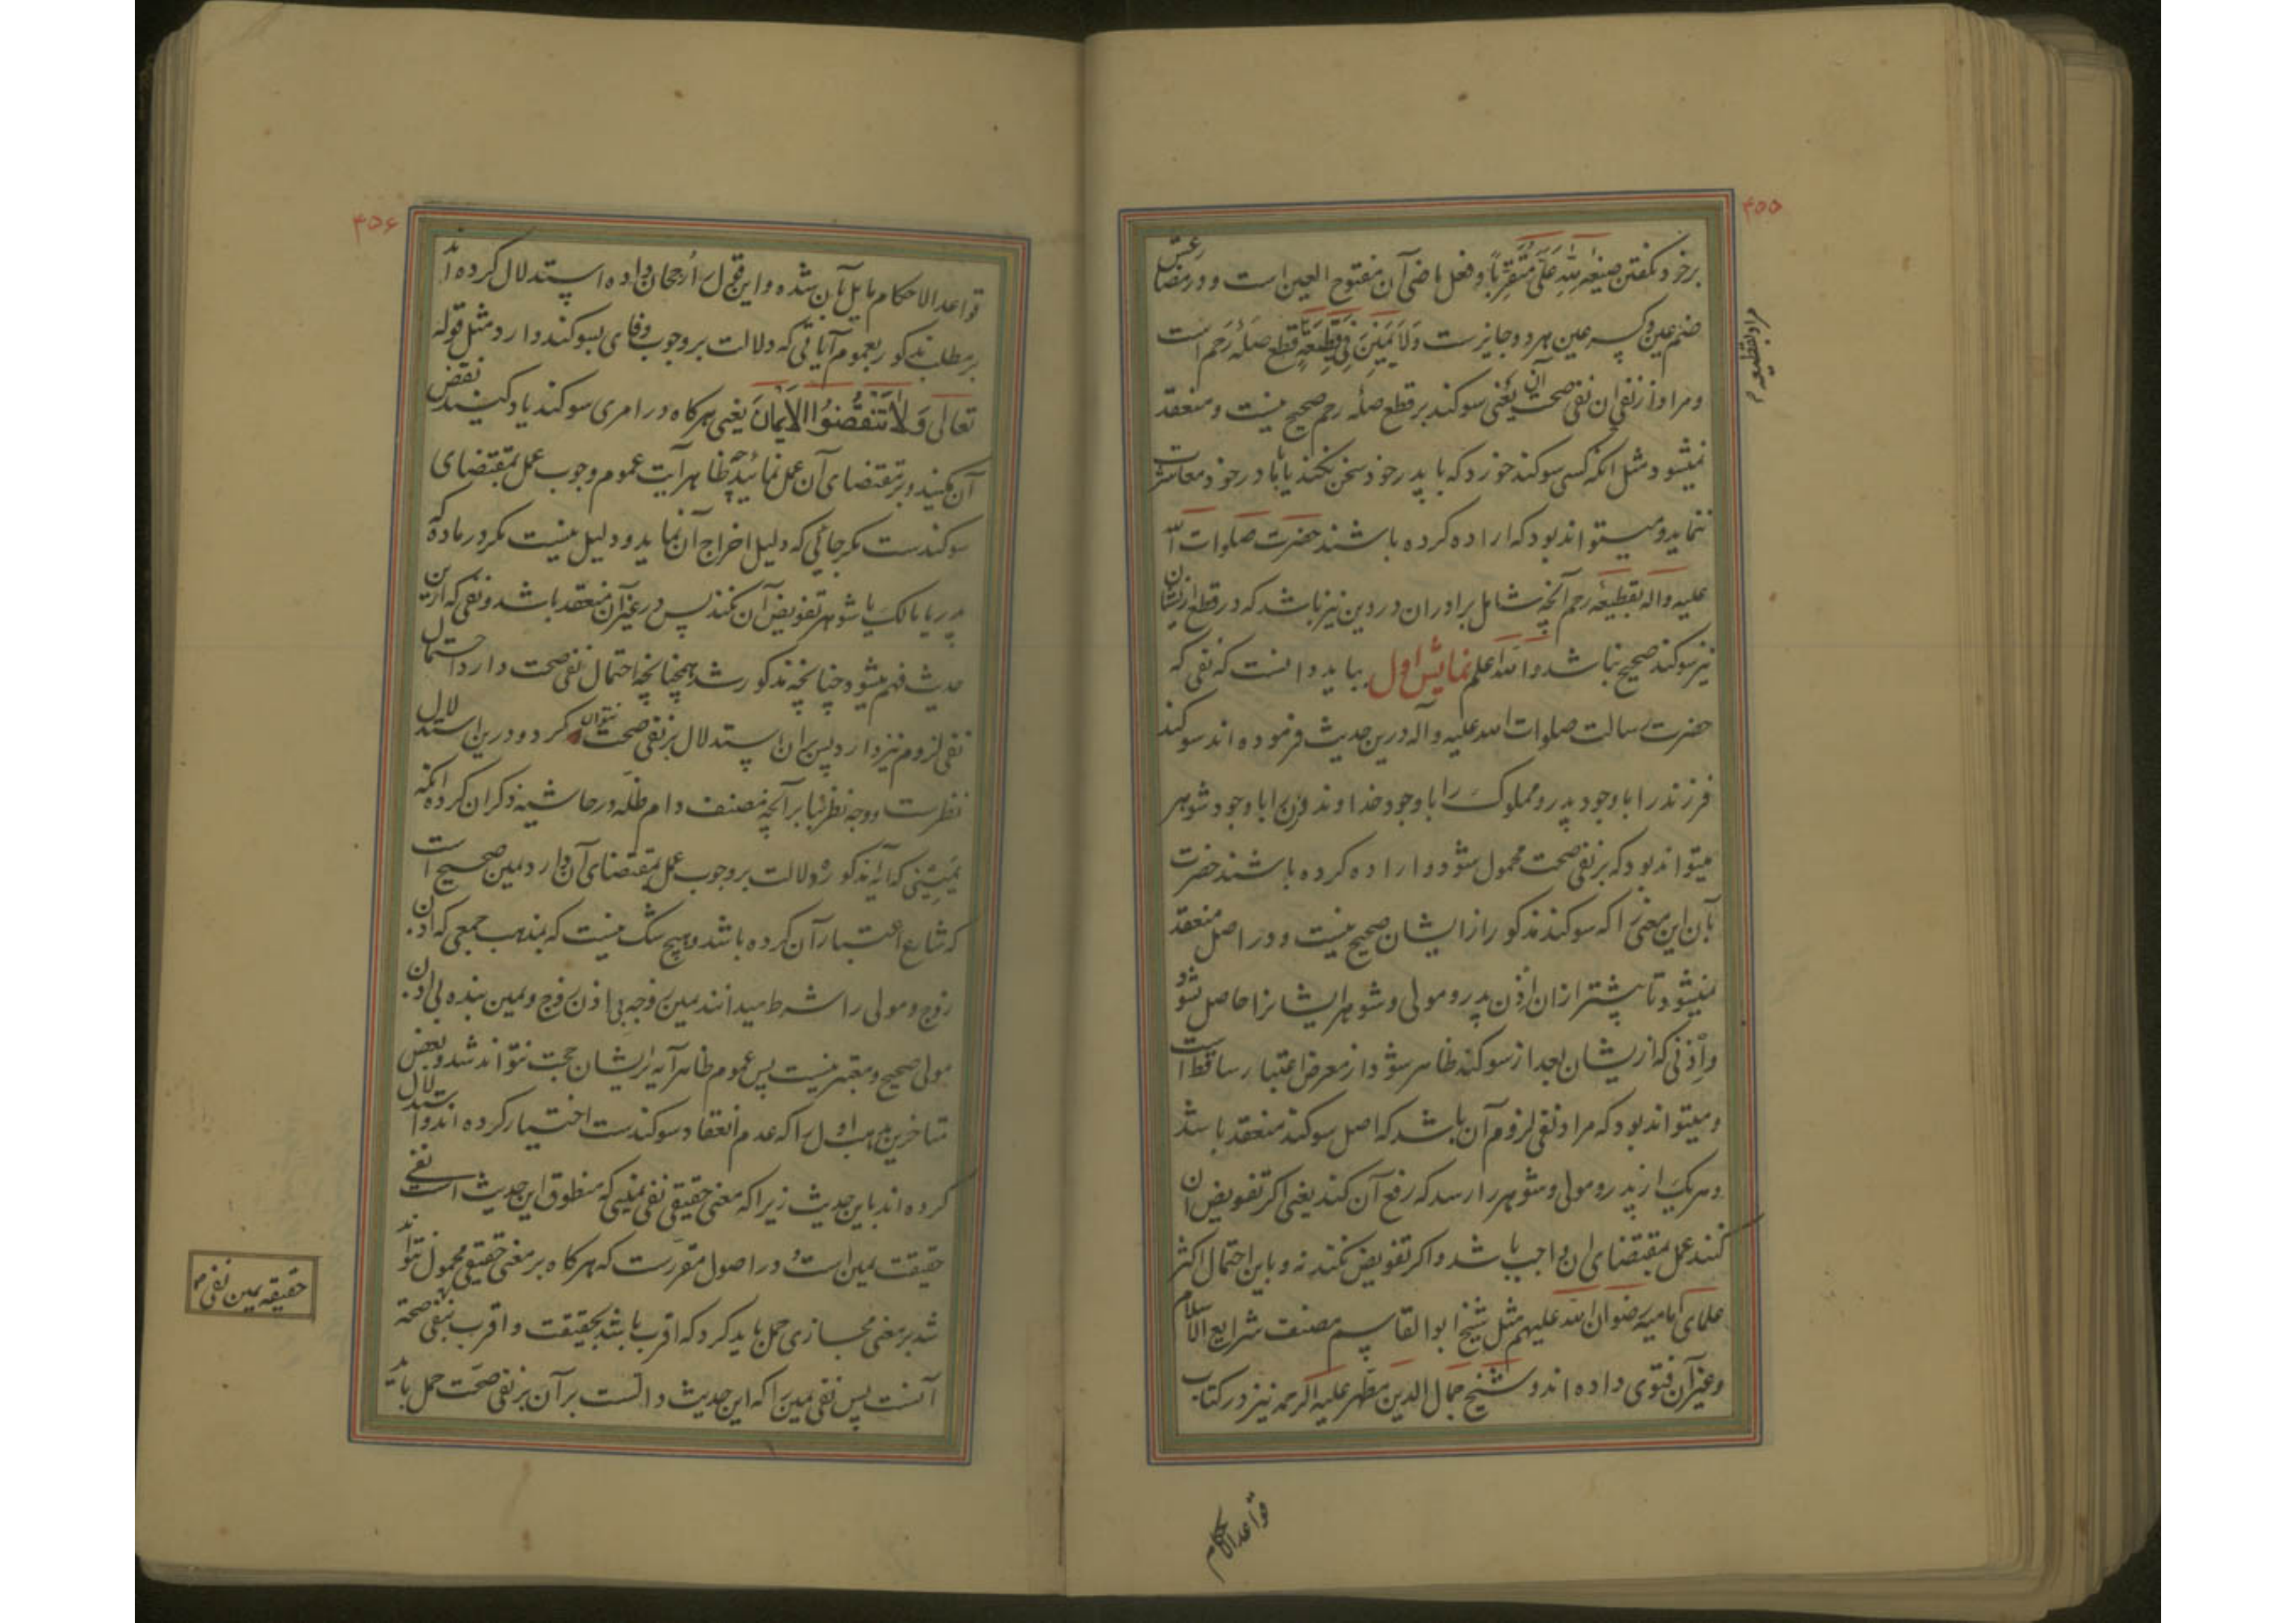 ۴۵۵
برخود بگفتن صیغه لِلّٰهِ عَلَیَّ مُتَقَرِّباً و فعل ماضی آن مفتوح العین است و در مضارعش
ضم عین و کسر عین هر دو جایزست وَلَا یَمِینَ فِی قَطِیعَةٍ قطع صلهٔ رحم است
مراد بقطیعه رحم
و مراد از نفی ان نفی صحت آن یعنی سوکند بر قطع صلهٔ رحم صحیح نیست و منعقد
نمیشود مثل انکه کسی سوکند خورد که با پدر خود سخن نکند یا با در خود معاشرت
ننماید و میتواند بود که اراده کرده باشند حضرت صلوات الله
علیه واله بقطیعه رحم آنچه شامل برادران در دین نیز باشد که در قطع ازیشان
نیز سوکند صحیح نباشد والله اعلم نمایش اول بباید دانست که نفی که
حضرت رسالت صلوات الله علیه و آله درین حدیث فرموده اند سوکند
فرزند را با وجود پدر و مملوک را با وجود خداوند و زن را با وجود شوهر
میتواند بود که بر نفی صحت محمول شود و اراده کرده باشند حضرت
بآن این معنی را که سوکند مذکور از ایشان صحیح نیست و در اصل منعقد
نمیشود تا پیشتر از ان اذن پدر و مولی و شوهر ایشانرا حاصل شود
و اذنی که ازیشان بعد از سوکند ظاهر شود از معرض اعتبار ساقط است
و میتواند بود که مراد نفی لزوم آن باشد که اصل سوکند منعقد باشد
و هر یک از پدر و مولی و شوهر را رسد که رفع آن کند یعنی اکر تفویض ان
کنند عمل بمقتضای ان واجب باشد و اکر تفویض نکند نه و باین احتمال اکثر
علمای امامیه رضوان الله علیهم مثل شیخ ابوالقاسم مصنف شرایع الاسلام
و غیر آن فتوی داده اند و شیخ جمال الدین مطهر علیه الرحمه نیز در کتاب
قواعد الاحکام
۴۵۶
قواعد الاحکام مایل بآن شده و این قول را رجحان داده استدلال کرده اند
بر مطلب مذکور بعموم آیاتی که دلالت بر وجوب وفای بسوکند دارد مثل قوله
تعالی وَلَا تَنْقُضُوا الْاَیْمَانَ یعنی هرکاه در امری سوکند یاد کنید نقض
آن مکنید و بر مقتضای آن عمل نمائید چه ظاهر آیت عموم وجوب عمل بمقتضای
سوکندست مکر جائی که دلیل اخراج آن نماید و دلیل نیست مکر در مادهٔ که
پدر یا مالک یا شوهر تفویض آن نکند پس در غیر آن منعقد باشد و نفی که ازین
حدیث فهم میشود چنانچه مذکور شد همچنانچه احتمال نفی صحت دارد احتمال
نفی لزوم نیز دارد پس بران استدلال بر نفی صحت نتوان کرد و درین استدلال
نظرست و وجه نظر بنا بر آنچه مصنف دام ظله در حاشیه ذکر ان کرده آنکه
یمینی که آیه مذکوره دلالت بر وجوب عمل بمقتضای آن دارد یمین صحیح است
که شارع اعتبار آن کرده باشد و هیچ شک نیست که بمذهب جمعی که اذن
زوج و مولی را شرط میدانند یمین زوجه بی اذن زوج و یمین بنده بی اذن
مولی صحیح و معتبر نیست پس عموم ظاهر آیه بر ایشان حجت نتواند شد و بعض
متاخرین مذهب اول را که عدم انعقاد سوکندست اختیار کرده اند و استدلال
کرده اند باین حدیث زیرا که معنی حقیقی نفی یمینی که منطوق این حدیث است نفی
حقیقت یمین است و در اصول مقررست که هرکاه بر معنی حقیقی محمول نتواند
حقیقه یمین نفی
شد بر معنی مجازی حمل باید کرد که اقرب باشد بحقیقت و اقرب بنفی صحة
آنست پس نفی یمین را که این حدیث دالست بر آن بر نفی صحت حمل باید